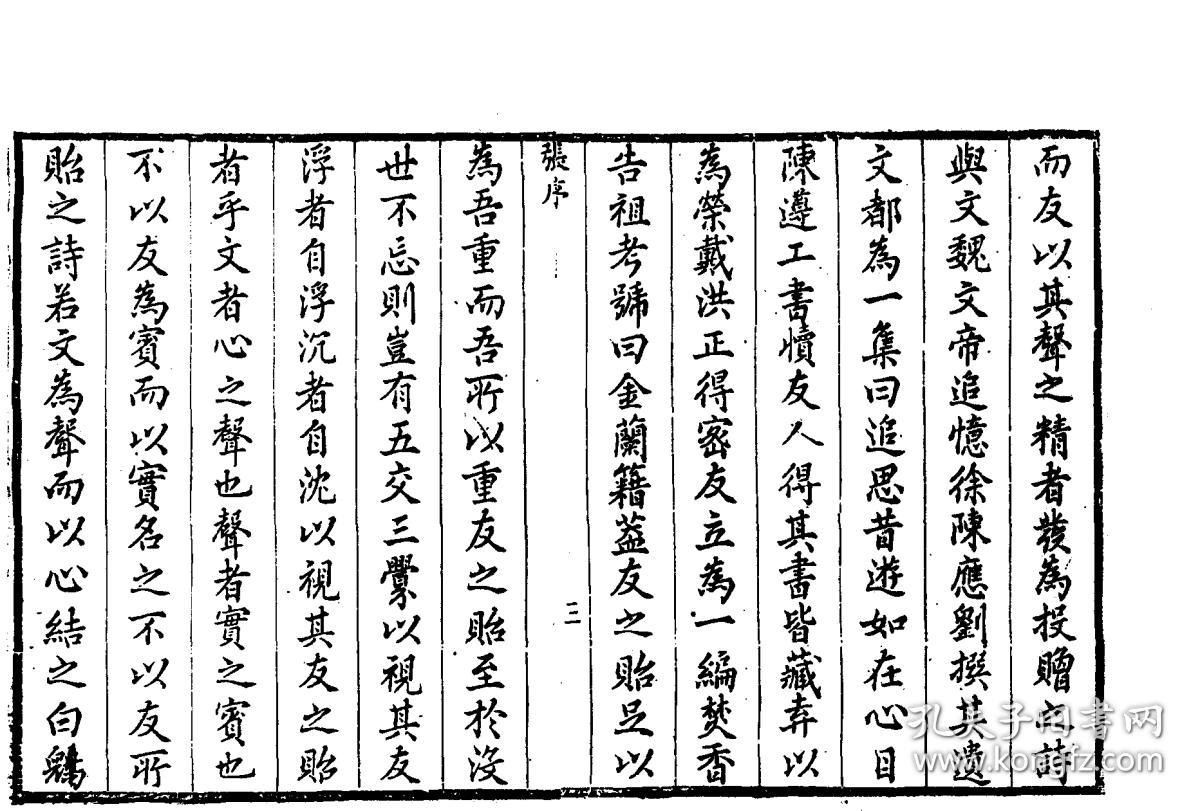 而友以其聲之精者發為投贈之詩
與文魏文帝追憶徐陳應劉撰其遺
文都為一集曰追思昔遊如在心目
陳遵工書牘友人得其書皆藏弆以
為榮戴洪正得密友立為一編焚香
告祖考號曰金蘭籍蓋友之貽足以
張序
二
為吾重而吾所以重友之貽至於沒
世不忘則豈有五交三釁以視其友
浮者自浮沉者自沈以視其友之貽
者乎文者心之聲也聲者實之賓也
不以友為賓而以實名之不以友所
貽之詩若文為聲而以心結之白鷴
孔夫子旧书网
www.kongfz.com